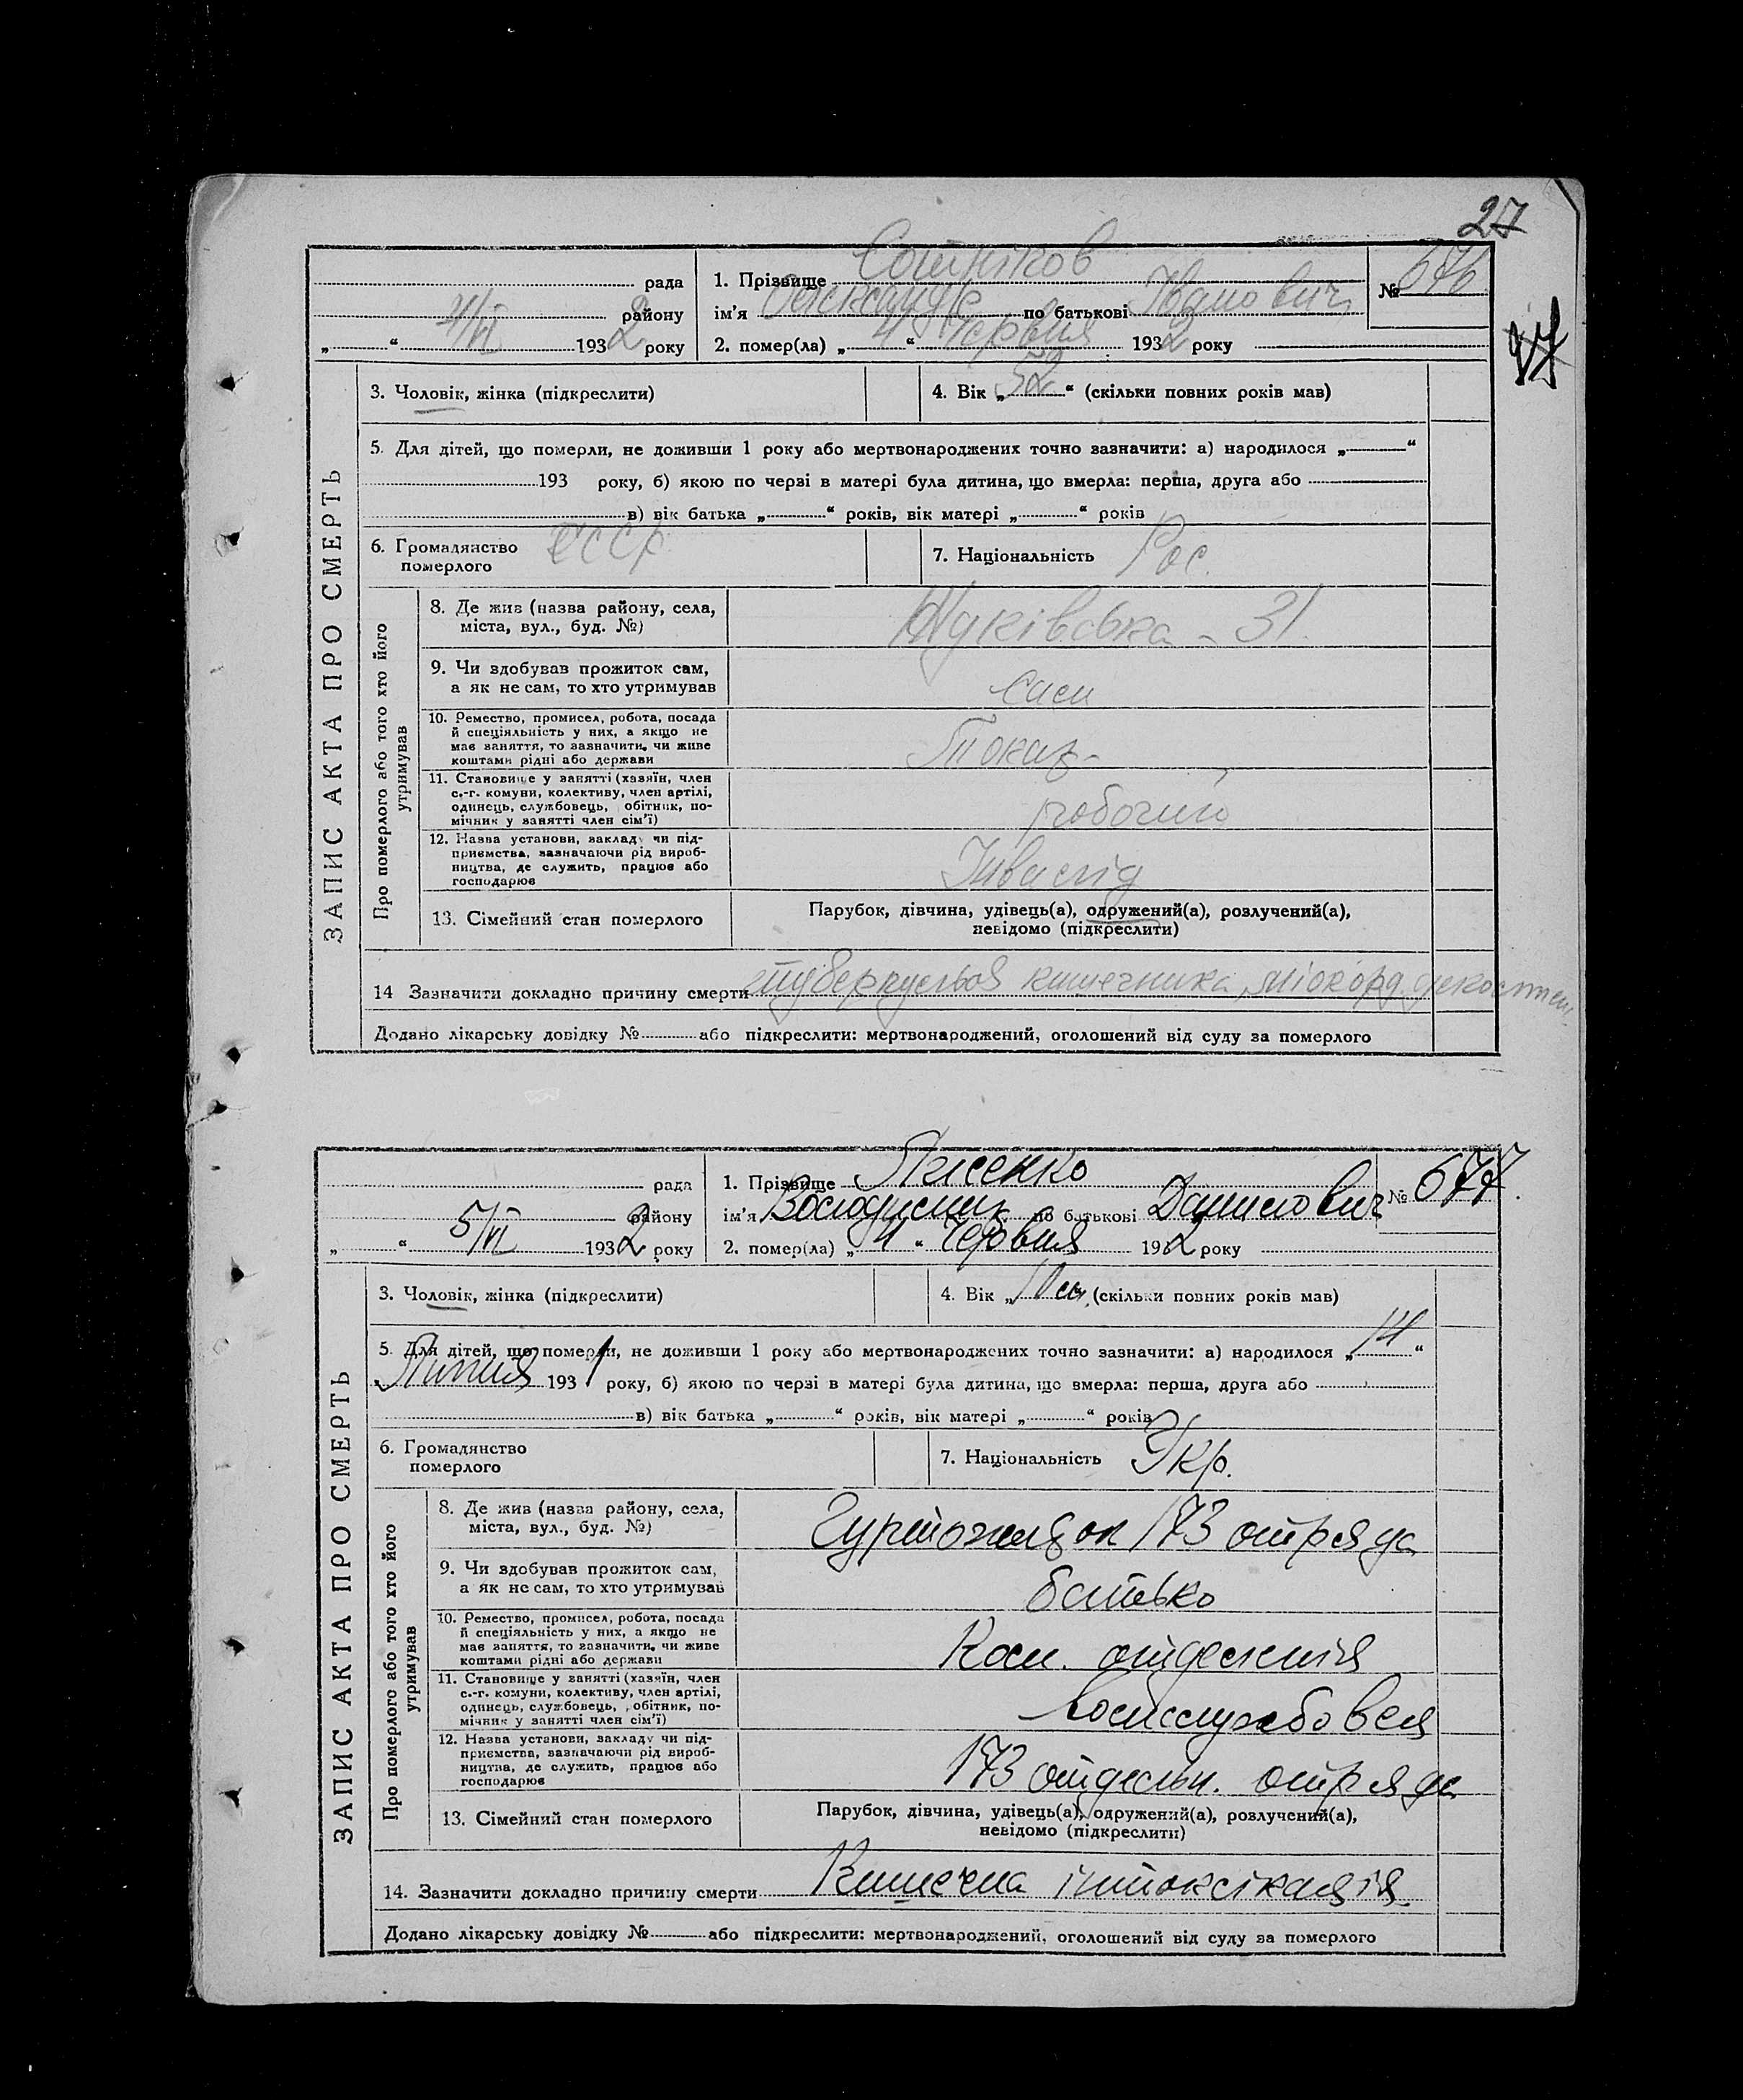 27
Сотніков
рада 1. Прізвище № 676
району ім'я Олександр по батькові Іванович
„ “ 4/VI 1932 року 2. помер(ла) „ 4 “ Червня 1932 року
47
3. Чоловік, жінка (підкреслити) 4. Вік „ 52 “ (скільки повних років мав)
5. Для дітей, що померли, не доживши 1 року або мертвонароджених точно зазначити: а) народилося „ “
193 року, б) якою по черзі в матері була дитина, що вмерла: перша, друга або
в) вік батька „ “ років, вік матері „ “ років
6. Громадянство СССР 7. Національність Рос.
померлого
ЗАПИС АКТА ПРО СМЕРТЬ
Про померлого або того хто його
утримував
8. Де жив (назва району, села,
міста, вул., буд. №) Жуківська - 31.
9. Чи здобував прожиток сам,
а як не сам, то хто утримував сам
10. Ремество, промисел, робота, посада
й спеціяльність у них, а якщо не
має заняття, то зазначити, чи живе Токар-
коштами рідні або держави
11. Становище у занятті (хазяїн, член
с.-г. комуни, колективу, член артілі,
одинець, службовець, обітник, по- робочий
мічник у занятті член сім'ї)
12. Назва установи, закладу чи під-
приємства, зазначаючи рід вироб-
ництва, де служить, працює або Інвалід
господарює
13. Сімейний стан померлого Парубок, дівчина, удівець(а), одружений(а), розлучений(а),
невідомо (підкреслити)
14 Зазначити докладно причину смерти туберкульоз кишечника, міокорд.
Додано лікарську довідку № або підкреслити: мертвонароджений, оголошений від суду за померлого
Лисенко
рада 1. Прізвище № 677.
району ім'я Володимир по батькові Данилович
„ “ 5/VI 1932 року 2. помер(ла) „ 4 “ Червня 1932 року
3. Чоловік, жінка (підкреслити) 4. Вік „ 10 м. (скільки повних років мав)
5. Для дітей, що померли, не доживши 1 року або мертвонароджених точно зазначити: а) народилося „ 14 “
Липня 1931 року, б) якою по черзі в матері була дитина, що вмерла: перша, друга або
в) вік батька „ “ років, вік матері „ “ років
6. Громадянство 7. Національність Укр.
померлого
ЗАПИС АКТА ПРО СМЕРТЬ
Про померлого або того хто його
утримував
8. Де жив (назва району, села,
міста, вул., буд. №) Гуртожиток 173 отряда
9. Чи здобував прожиток сам,
а як не сам, то хто утримував батько
10. Ремество, промисел, робота, посада
й спеціяльність у них, а якщо не
має заняття, то зазначити, чи живе Ком. отделенія
коштами рідні або держави
11. Становище у занятті (хазяїн, член
с.-г. комуни, колективу, член артілі,
одинець, службовець, обітник, по-
мічник у занятті член сім'ї)
12. Назва установи, закладу чи під-
приємства, зазначаючи рід вироб-
ництва, де служить, працює або 173 отдельн. отряда
господарює
13. Сімейний стан померлого Парубок, дівчина, удівець(а), одружений(а), розлучений(а),
невідомо (підкреслити)
14. Зазначити докладно причину смерти Кишечна інтоксікація
Додано лікарську довідку № або підкреслити: мертвонароджений, оголошений від суду за померлого